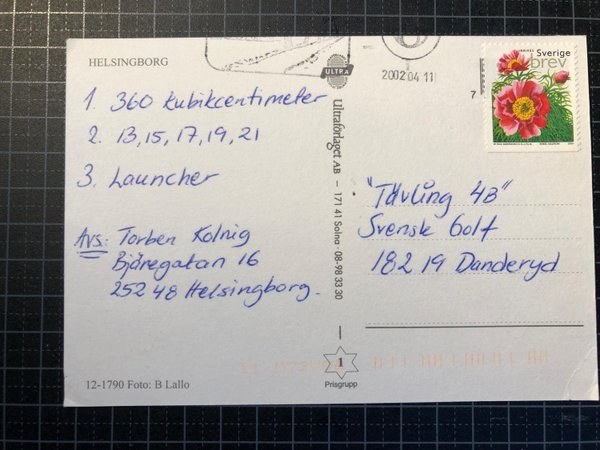 HELSINGBORG
1. 360 Kubikcentimeter
2. 13, 15, 17, 19, 21
3. Launcher
Avs: Torben Kolnig
Bjäregatan 16
252 48 Helsingborg.
12-1790 Foto: B Lallo
ULTRA
Ultraförlaget AB – 171 41 Solna · 08-98 33 30
1
Prisgrupp
2002 04 11
7
Sverige
brev
"Tävling 4B"
Svensk Golf
182 19 Danderyd